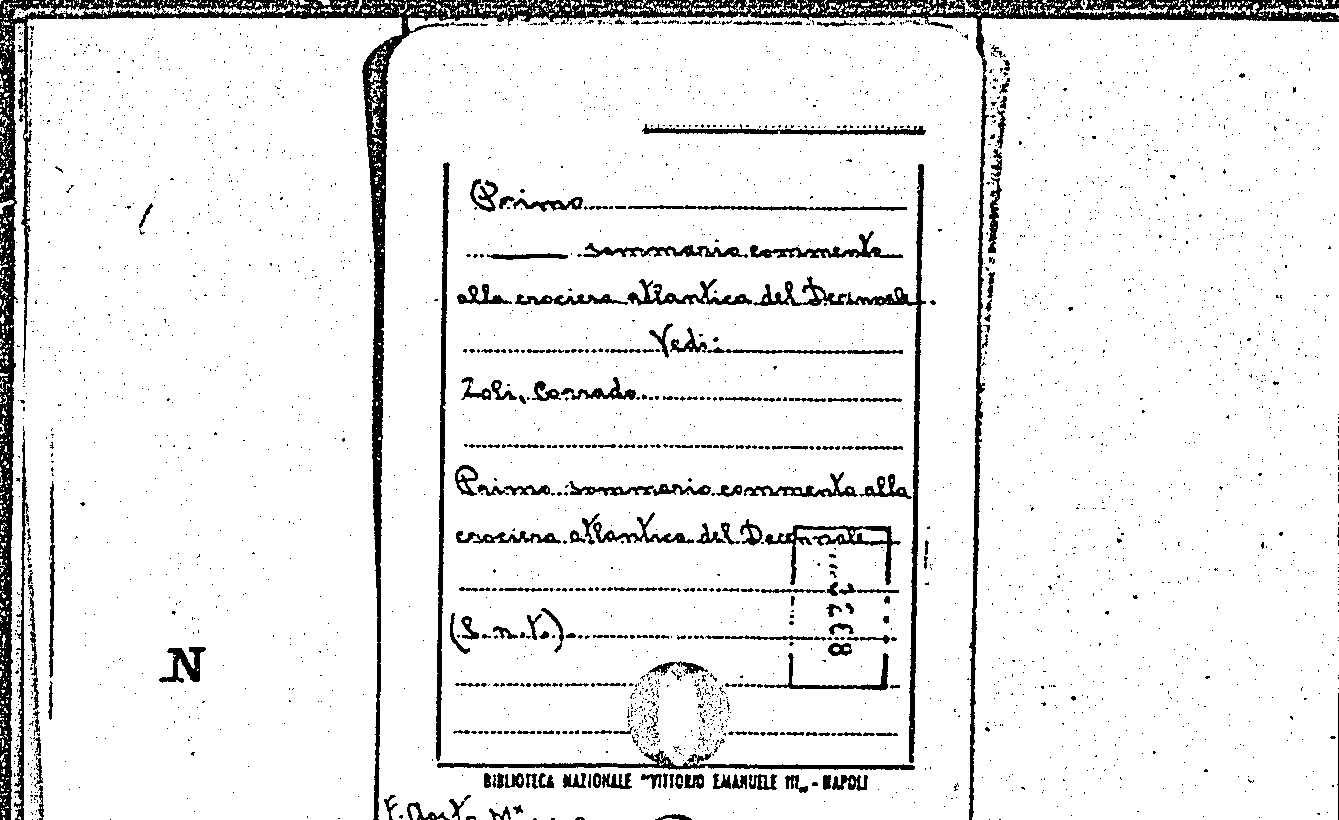 Primo
sommario commento
alla crociera atlantica del Decennale.
Vedi:
Zoli, Corrado
Primo sommario commento alla
crociera atlantica del Decennale
(S.n.t.)
N
BIBLIOTECA NAZIONALE "VITTORIO EMANUELE III„ - NAPOLI